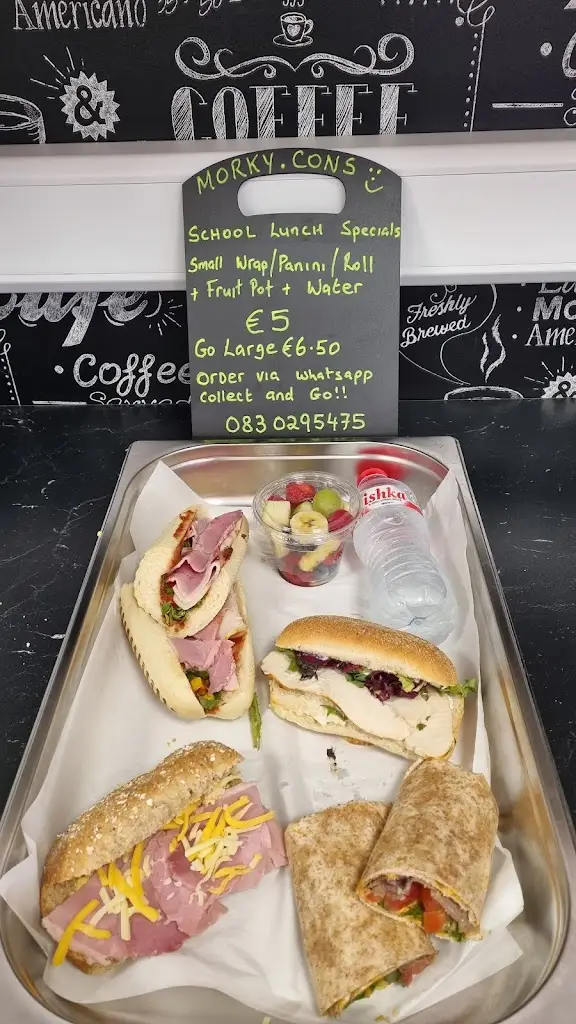 Americano
&
COFFEE
MORKY.CONS
SCHOOL LUNCH Specials
Small Wrap/Panini/Roll
+ Fruit Pot + Water
€5
Go Large €6.50
order via whatsapp
collect and Go!!
083 0295475
Cafe
Coffee
Freshly
Brewed
ishka